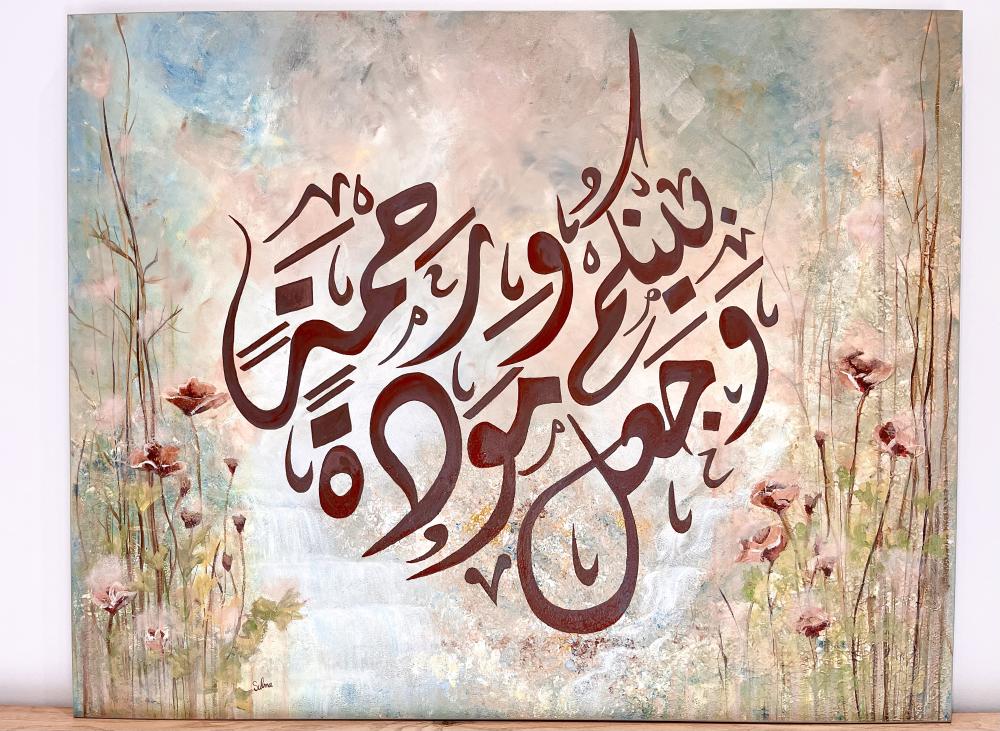 وَجَعَلَ بَيْنَكُم مَوَدَّةً وَرَحْمَةً
Selma